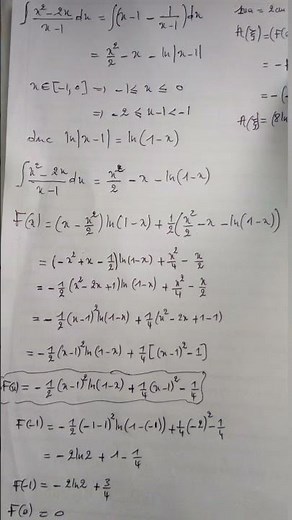 ∫ (x²-2x)/(x-1) dx = ∫(x-1 - 1/(x-1))dx
= x²/2 - x - ln|x-1|
x ∈ [-1,0] ⇒ -1 ≤ x ≤ 0
⇒ -2 ≤ x-1 ≤ -1
donc ln|x-1| = ln(1-x)
∫ (x²-2x)/(x-1) dx = x²/2 - x - ln(1-x)
F(x) = (x - x²/2) ln(1-x) + 1/2(x²/2 - x - ln(1-x))
= (-x²/2 + x - 1/2) ln(1-x) + x²/4 - x/2
= -1/2 (x²-2x+1) ln(1-x) + x²/4 - x/2
= -1/2 (x-1)² ln(1-x) + 1/4(x²-2x+1-1)
= -1/2 (x-1)² ln(1-x) + 1/4[(x-1)²-1]
F(x) = -1/2 (x-1)² ln(1-x) + 1/4(x-1)² - 1/4
F(-1) = -1/2(-1-1)² ln(1-(-1)) + 1/4(-2)² - 1/4
= -2ln2 + 1 - 1/4
F(-1) = -2ln2 + 3/4
F(0) = 0